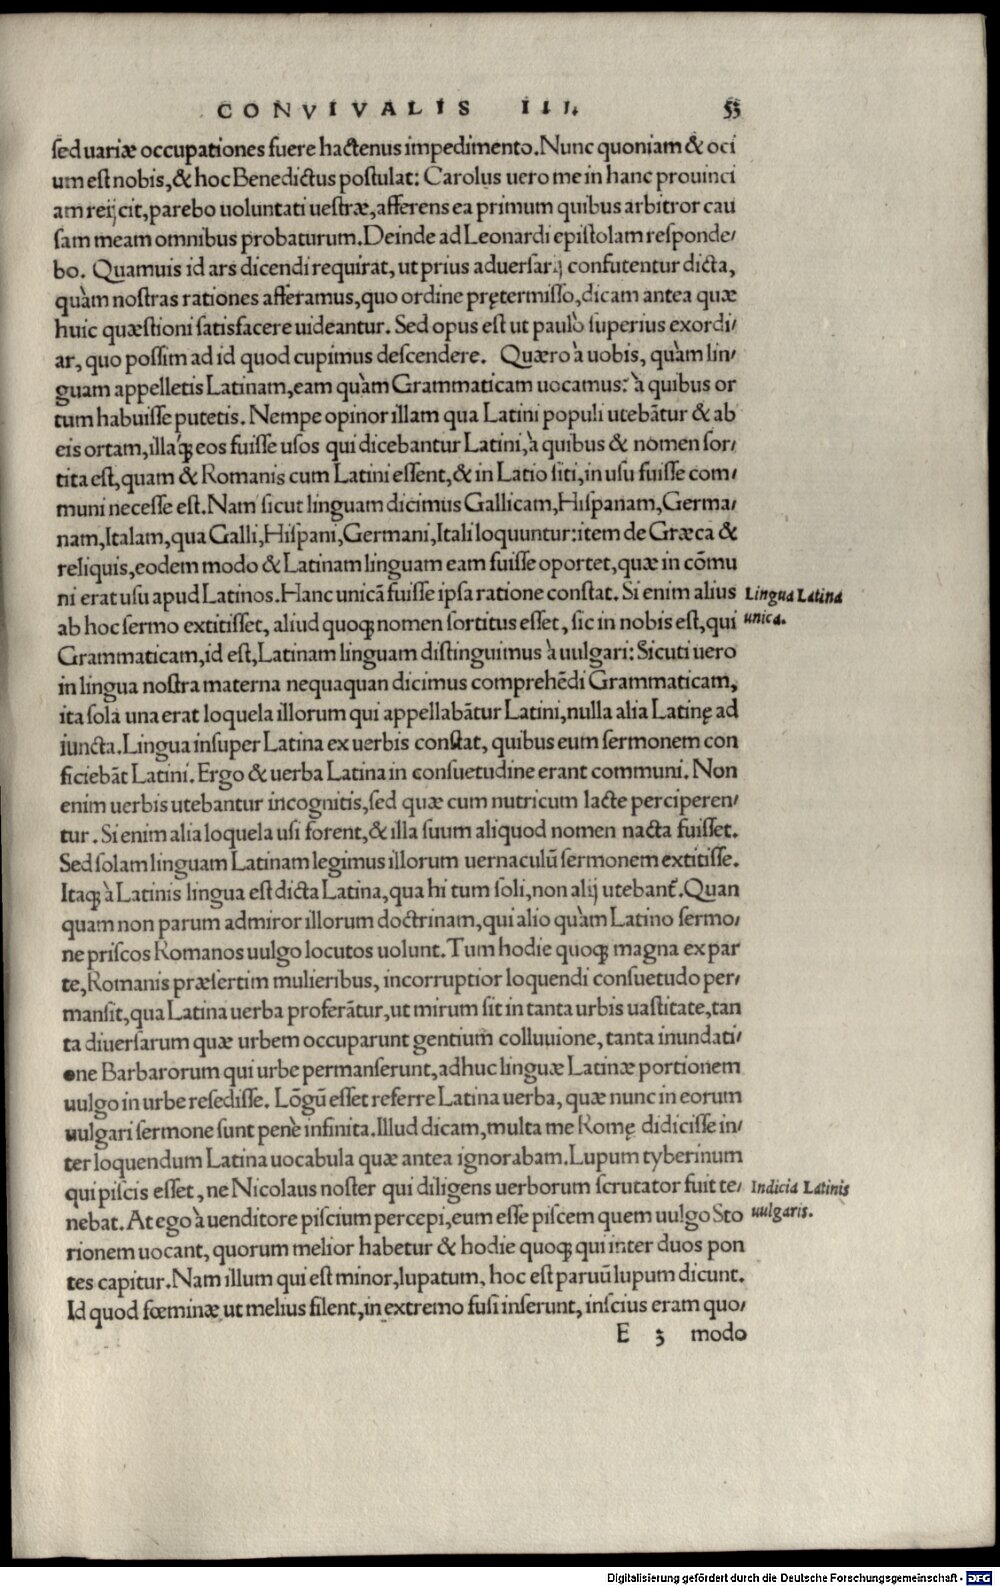 CONVIVALIS III. 53
ſed uariæ occupationes fuere hactenus impedimento. Nunc quoniam & oci
um est nobis, & hoc Benedictus poſtulat: Carolus uero me in hanc prouinci
am reijcit, parebo uoluntati ueſtræ, afferens ea primum quibus arbitror cau
ſam meam omnibus probaturum. Deinde ad Leonardi epiſtolam reſponde/
bo. Quamuis id ars dicendi requirat, ut prius aduerſarij confutentur dicta,
quàm noſtras rationes afferamus, quo ordine prętermiſſo, dicam antea quæ
huic quæſtioni ſatisfacere uideantur. Sed opus eſt ut paulò ſuperius exordi/
ar, quo poſſim ad id quod cupimus deſcendere. Quæro à uobis, quàm lin/
guam appelletis Latinam, eam quàm Grammaticam uocamus: à quibus or
tum habuiſſe putetis. Nempe opinor illam qua Latini populi utebātur & ab
eis ortam, illaq́; eos fuiſſe uſos qui dicebantur Latini, à quibus & nomen ſor/
tita eſt, quam & Romanis cum Latini eſſent, & in Latio ſiti, in uſu fuiſſe com/
muni neceſſe eſt. Nam ſicut linguam dicimus Gallicam, Hiſpanam, Germa/
nam, Italam, qua Galli, Hiſpani, Germani, Itali loquuntur: item de Græca &
reliquis, eodem modo & Latinam linguam eam fuiſſe oportet, quæ in cōmu
ni erat uſu apud Latinos. Hanc unicā fuiſſe ipſa ratione conſtat. Si enim alius
Lingua Latina
ab hoc ſermo extitiſſet, aliud quoq; nomen ſortitus eſſet, ſic in nobis eſt, qui
unica.
Grammaticam, id eſt, Latinam linguam diſtinguimus à uulgari: Sicuti uero
in lingua noſtra materna nequaquan dicimus comprehēdi Grammaticam,
ita ſola una erat loquela illorum qui appellabātur Latini, nulla alia Latinę ad
iuncta. Lingua inſuper Latina ex uerbis conſtat, quibus eum ſermonem con
ficiebāt Latini. Ergo & uerba Latina in conſuetudine erant communi. Non
enim uerbis utebantur incognitis, ſed quæ cum nutricum lacte perciperen/
tur. Si enim alia loquela uſi forent, & illa ſuum aliquod nomen nacta fuiſſet.
Sed ſolam linguam Latinam legimus illorum uernaculū ſermonem extitiſſe.
Itaq; à Latinis lingua eſt dicta Latina, qua hi tum ſoli, non alij utebant̄. Quan
quam non parum admiror illorum doctrinam, qui alio quàm Latino ſermo/
ne priſcos Romanos uulgo locutos uolunt. Tum hodie quoq; magna ex par
te, Romanis præſertim mulieribus, incorruptior loquendi conſuetudo per/
manſit, qua Latina uerba proferātur, ut mirum ſit in tanta urbis uaſtitate, tan
ta diuerſarum quæ urbem occuparunt gentium colluuione, tanta inundati/
one Barbarorum qui urbe permanſerunt, adhuc linguæ Latinæ portionem
uulgo in urbe reſediſſe. Lōgū eſſet referre Latina uerba, quæ nunc in eorum
uulgari ſermone ſunt penè infinita. Illud dicam, multa me Romę didiciſſe in/
ter loquendum Latina uocabula quæ antea ignorabam. Lupum tyberinum
qui piſcis eſſet, ne Nicolaus noſter qui diligens uerborum ſcrutator fuit te/
Indicia Latinis
nebat. At ego à uenditore piſcium percepi, eum eſſe piſcem quem uulgo Sto
uulgaris.
rionem uocant, quorum melior habetur & hodie quoq; qui inter duos pon
tes capitur. Nam illum qui eſt minor, lupatum, hoc eſt paruū lupum dicunt.
Id quod fœminæ ut melius filent, in extremo fuſi inſerunt, inſcius eram quo/
E 3 modo
Digitalisierung gefördert durch die Deutsche Forschungsgemeinschaft - DFG